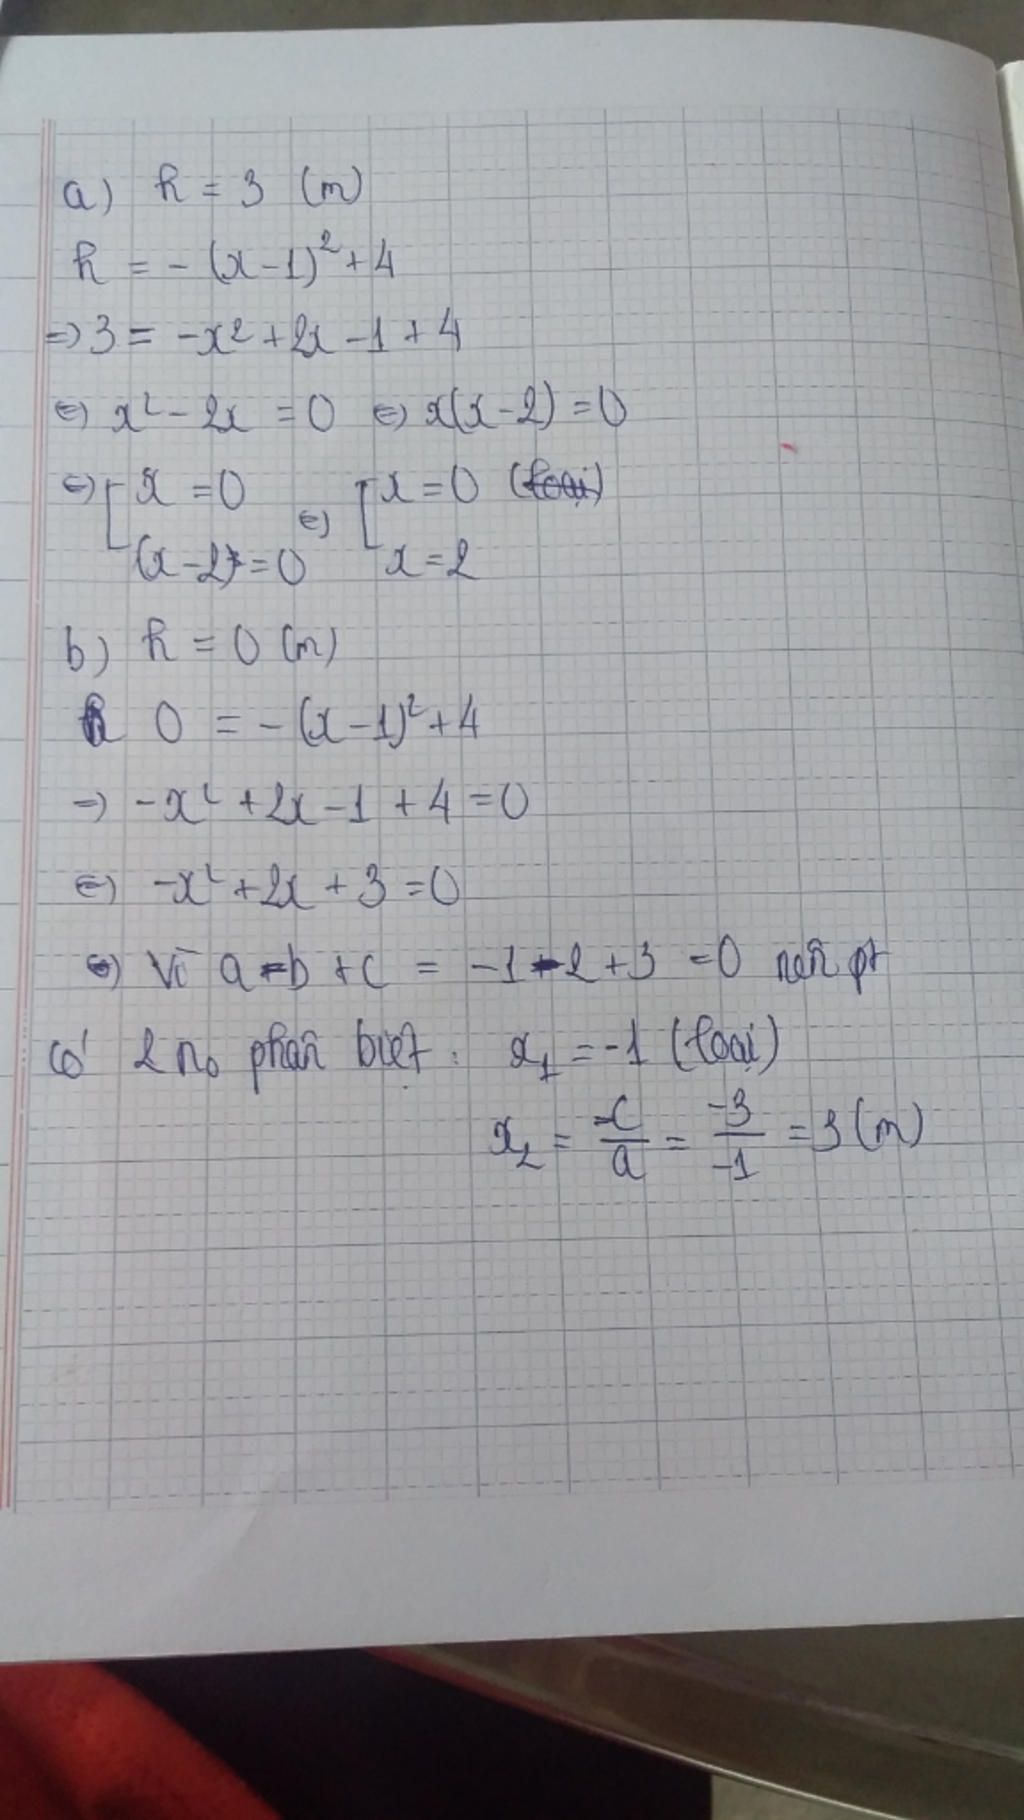 a) h = 3 (m)
h = -(x-1)² + 4
=> 3 = -x² + 2x - 1 + 4
<=> x² - 2x = 0 <=> x(x-2) = 0
<=> [ x = 0 <=> [ x = 0 (loại)
(x-2) = 0 x = 2
b) h = 0 (m)
0 = -(x-1)² + 4
=> -x² + 2x - 1 + 4 = 0
<=> -x² + 2x + 3 = 0
<=> Vì a - b + c = -1 - 2 + 3 = 0 nên pt
có 2 no phân biệt : x₁ = -1 (loại)
x₂ = -c/a = -3/-1 = 3 (m)